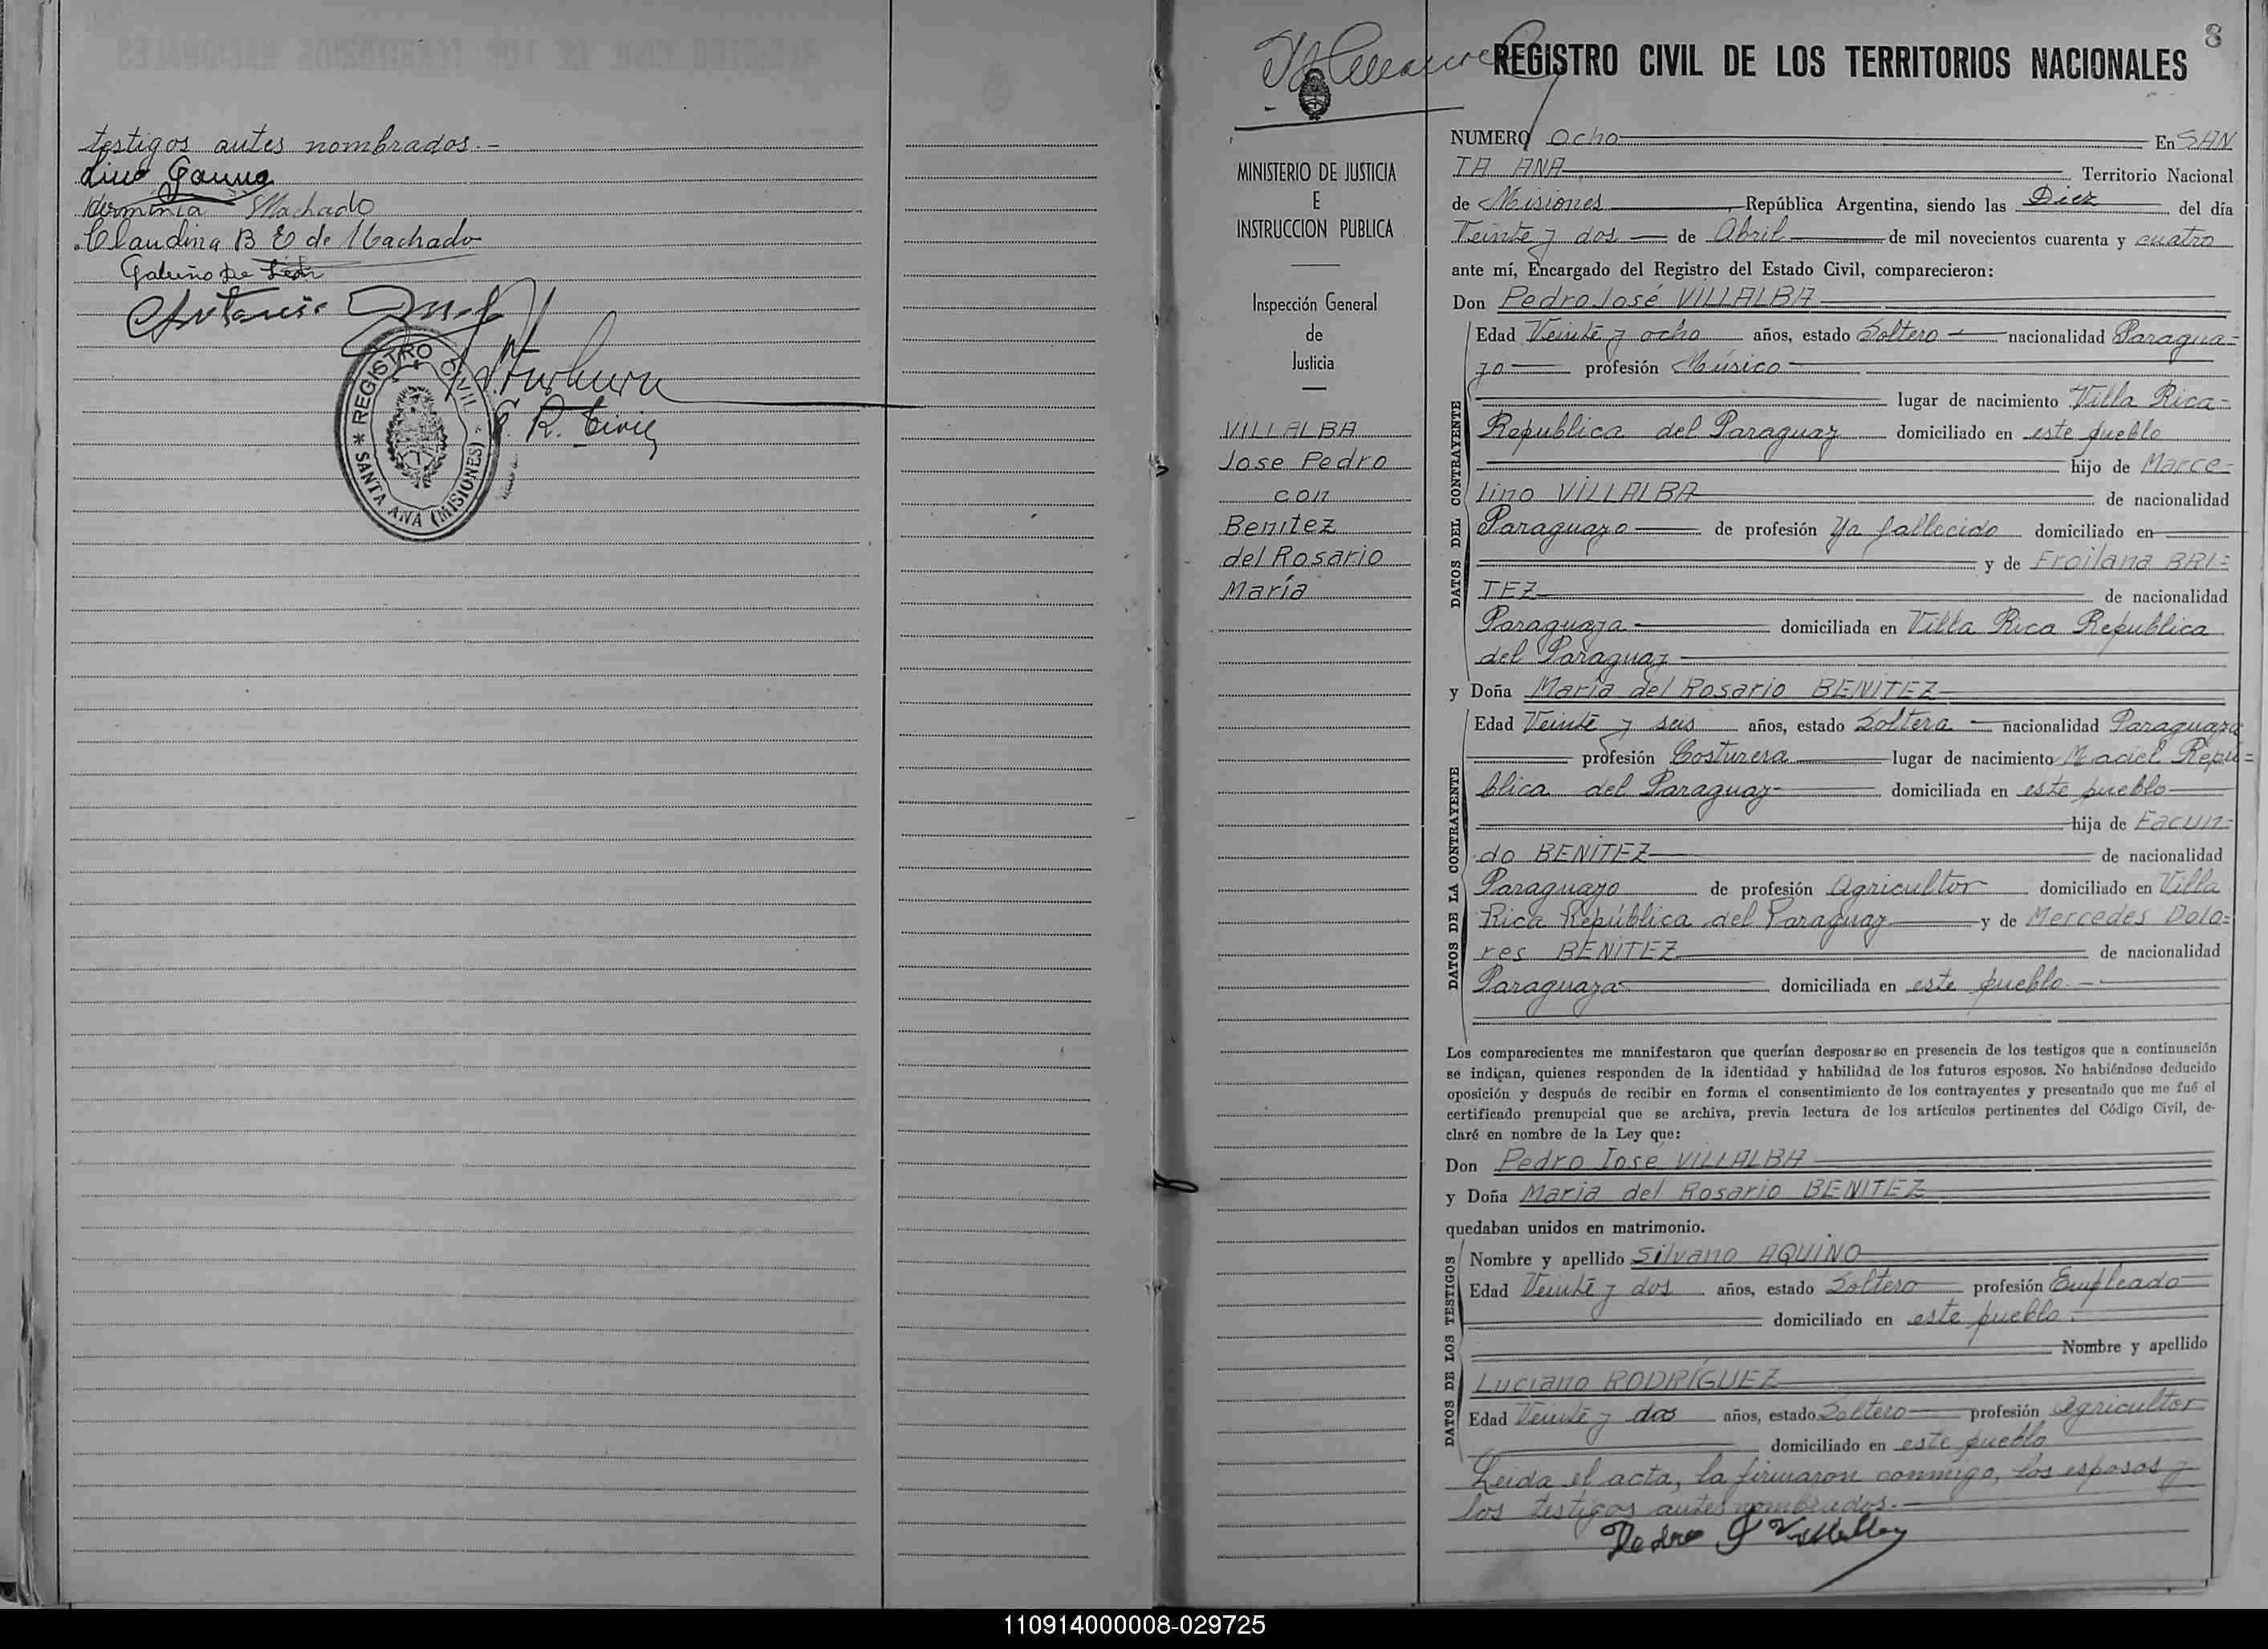 testigos antes nombrados.-
Lino Gauna
Herminia Machado
Claudina B E de Machado
Galeino De León
Antonio
E. R. Civil
REGISTRO CIVIL
* SANTA ANA (MISIONES) *
8
REGISTRO CIVIL DE LOS TERRITORIOS NACIONALES
MINISTERIO DE JUSTICIA
E
INSTRUCCION PUBLICA
Inspección General
de
Justicia
VILLALBA
Jose Pedro
con
Benitez
del Rosario
María
NUMERO Ocho En SAN
TA ANA Territorio Nacional
de Misiones, República Argentina, siendo las Diez del día
Veinte y dos de Abril de mil novecientos cuarenta y cuatro
ante mí, Encargado del Registro del Estado Civil, comparecieron:
Don Pedro José VILLALBA
DATOS DEL CONTRAYENTE
Edad Veinte y ocho años, estado Soltero nacionalidad Paragua=
yo profesión Músico
lugar de nacimiento Villa Rica=
Republica del Paraguay domiciliado en este pueblo
hijo de Marce=
lino VILLALBA de nacionalidad
Paraguayo de profesión Ya fallecido domiciliado en
y de Froilana BRI=
TEZ de nacionalidad
Paraguaya domiciliada en Villa Rica Republica
del Paraguay
y Doña María del Rosario BENITEZ
DATOS DE LA CONTRAYENTE
Edad Veinte y seis años, estado Soltera nacionalidad Paraguaya
profesión Costurera lugar de nacimiento Maciel Repú=
blica del Paraguay domiciliada en este pueblo
hija de Facun=
do BENITEZ de nacionalidad
Paraguayo de profesión Agricultor domiciliado en Villa
Rica República del Paraguay y de Mercedes Dolo=
res BENITEZ de nacionalidad
Paraguaya domiciliada en este pueblo.-
Los comparecientes me manifestaron que querían desposarse en presencia de los testigos que a continuación
se indican, quienes responden de la identidad y habilidad de los futuros esposos. No habiéndose deducido
oposición y después de recibir en forma el consentimiento de los contrayentes y presentado que me fué el
certificado prenupcial que se archiva, previa lectura de los artículos pertinentes del Código Civil, de-
claré en nombre de la Ley que:
Don Pedro Jose VILLALBA
y Doña Maria del Rosario BENITEZ
quedaban unidos en matrimonio.
DATOS DE LOS TESTIGOS
Nombre y apellido Silvano AQUINO
Edad Veinte y dos años, estado Soltero profesión Empleado
domiciliado en este pueblo.
Nombre y apellido
Luciano RODRÍGUEZ
Edad Veinte y dos años, estado Soltero profesión Agricultor
domiciliado en este pueblo
Leida el acta, la firmaron conmigo, los esposos y
los testigos antes nombrados.-
Pedro J Villalba
110914000008-029725